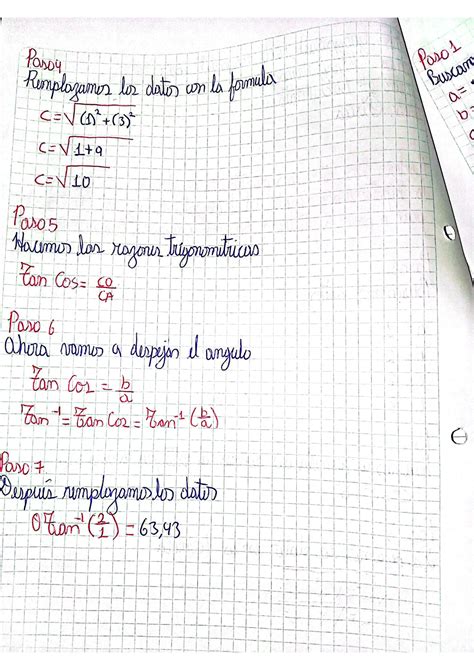 Paso 4
Remplazamos los datos con la formula
c=√(1)²+(3)²
c=√1+9
c=√10
Paso 5
Hacemos las razones trigonometricas
Tan Cos= CO/CA
Paso 6
Ahora vamos a despejar el angulo
Tan Cos = b/a
Tan⁻¹=Tan Cos=Tan⁻¹(b/a)
Paso 7
Después remplazamos los datos
O Tan⁻¹(2/1)=63,43
Paso 1
Buscam
a=
b=